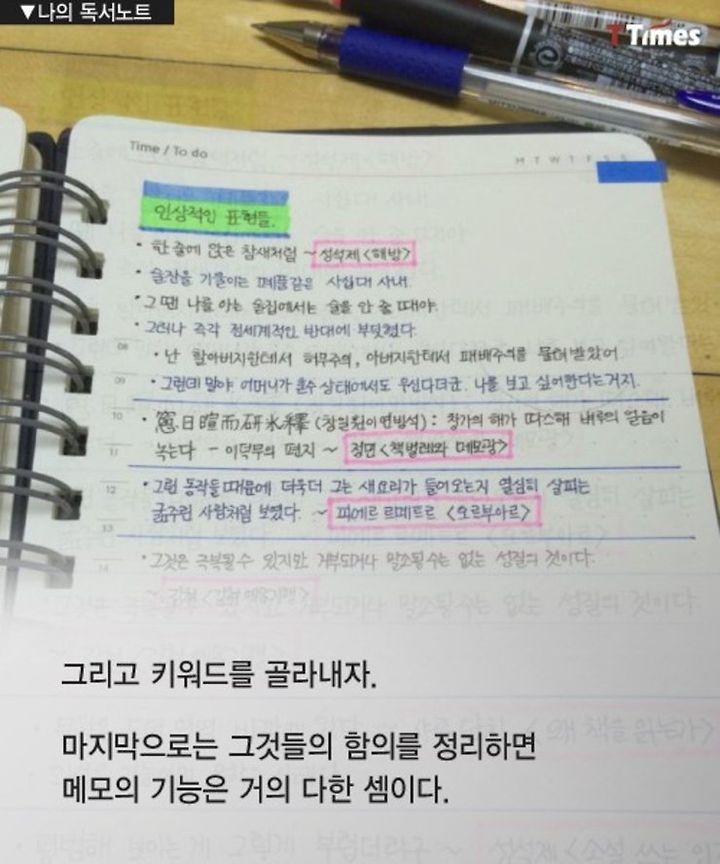 ▼나의 독서노트
TTimes
Time / To do
M T W T F S S
인상적인 표현들.
• 한 줄에 앉은 참새처럼 ~ 성석제 <해방>
• 술잔을 기울이는 페플같은 사십대 사내.
• 그 땐 나를 아는 술집에서는 술을 안 줄 때야.
• 그러나 즉각 전세계적인 반대에 부딪혔다.
08
• 난 할아버지한테서 허무주의, 아버지한테서 패배주의를 물려받았어
09
• 그런데 말야 어머니가 혼수 상태에서도 우신다더군. 나를 보고 싶어한다는거지.
10
• 窓日暄而硯氷釋 (창일훤이연빙석) : 창가의 해가 따스해 벼루의 얼음이
11
녹는다 - 이덕무의 편지 ~ 정민 <책벌레와 메모광>
12
• 그런 동작들 때문에 더욱더 그는 새요리가 들어오는지 열심히 살피는
굶주린 사람처럼 보였다. ~ 피에르 르메트르 <오르부아르>
13
14
• 그것은 극복될 수 있지만 거부되거나 말소될 수는 없는 성질의 것이다.
그리고 키워드를 골라내자.
마지막으로는 그것들의 함의를 정리하면
메모의 기능은 거의 다한 셈이다.